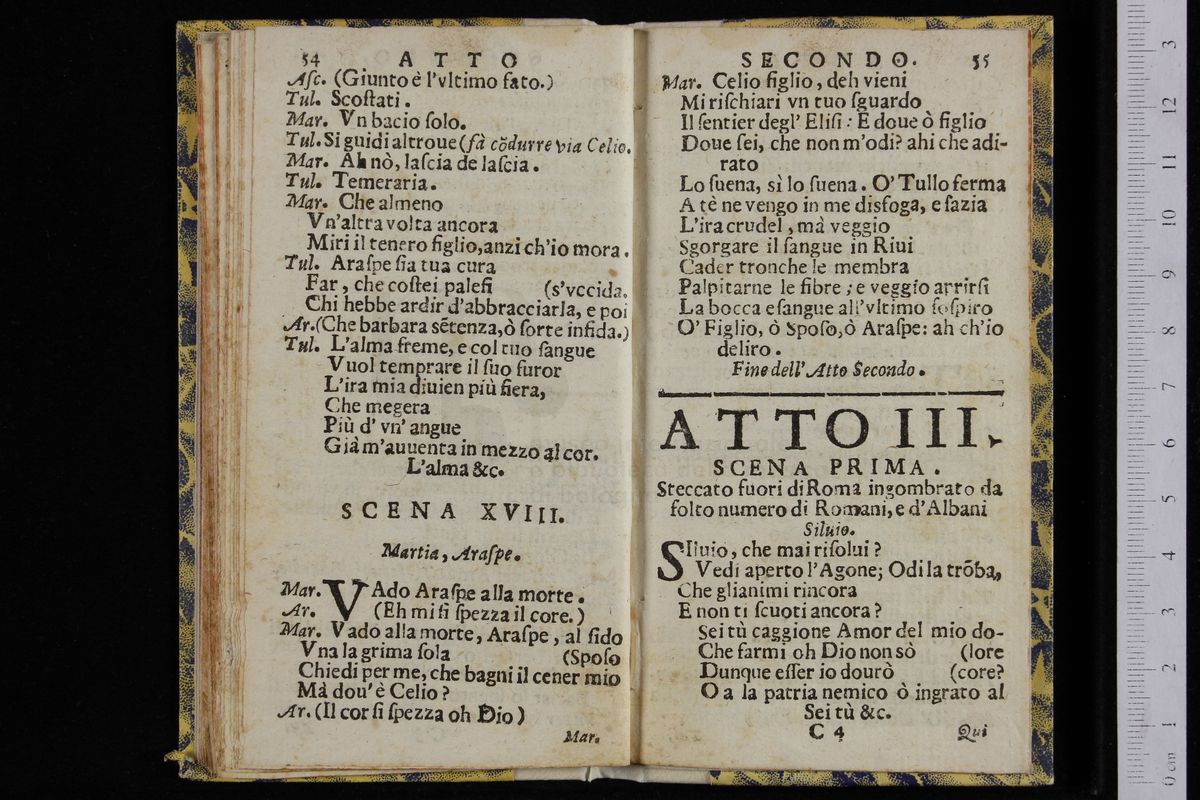 54 ATTO
Aſc. (Giunto è l'vltimo fato.)
Tul. Scoſtati.
Mar. Vn bacio ſolo.
Tul. Si guidi altroue (fà cōdurre via Celio.
Mar. Ah nò, laſcia de laſcia.
Tul. Temeraria.
Mar. Che almeno
Vn'altra volta ancora
Miri il tenero figlio, anzi ch'io mora.
Tul. Araſpe ſia tua cura
Far, che coſtei paleſi (s'vccida.
Chi hebbe ardir d'abbracciarla, e poi
Ar. (Che barbara sētenza, ò ſorte infida.)
Tul. L'alma freme, e col tuo ſangue
Vuol temprare il ſuo furor
L'ira mia diuien più fiera,
Che megera
Più d' vn' angue
Già m'auuenta in mezzo al cor.
L'alma &c.
SCENA XVIII.
Martia, Araſpe.
Mar. VAdo Araſpe alla morte.
Ar. (Eh mi ſi ſpezza il core.)
Mar. Vado alla morte, Araſpe, al fido
Vna lagrima ſola (Spoſo
Chiedi per me, che bagni il cener mio
Mà dou' è Celio?
Ar. (Il cor ſi ſpezza oh Dio)
Mar.
SECONDO. 55
Mar. Celio figlio, deh vieni
Mi riſchiari vn tuo ſguardo
Il ſentier degl' Eliſi: E doue ò figlio
Doue ſei, che non m'odi? ahi che adi-
rato
Lo ſuena, sì lo ſuena. O' Tullo ferma
A tè ne vengo in me disfoga, e ſazia
L'ira crudel, mà veggio
Sgorgare il ſangue in Riui
Cader tronche le membra
Palpitarne le fibre; e veggio aprirſi
La bocca eſangue all'vltimo ſoſpiro
O' Figlio, ò Spoſo, ò Araſpe: ah ch'io
deliro.
Fine dell' Atto Secondo.
ATTO III.
SCENA PRIMA.
Steccato fuori di Roma ingombrato da
folto numero di Romani, e d'Albani
Siluio.
SIluio, che mai riſolui?
Vedi aperto l'Agone; Odi la trōba,
Che gl'animi rincora
E non ti ſcuoti ancora?
Sei tù caggione Amor del mio do-
Che farmi oh Dio non sò (lore
Dunque eſſer io dourò (core?
O a la patria nemico ò ingrato al
Sei tù &c.
C 4 Qui